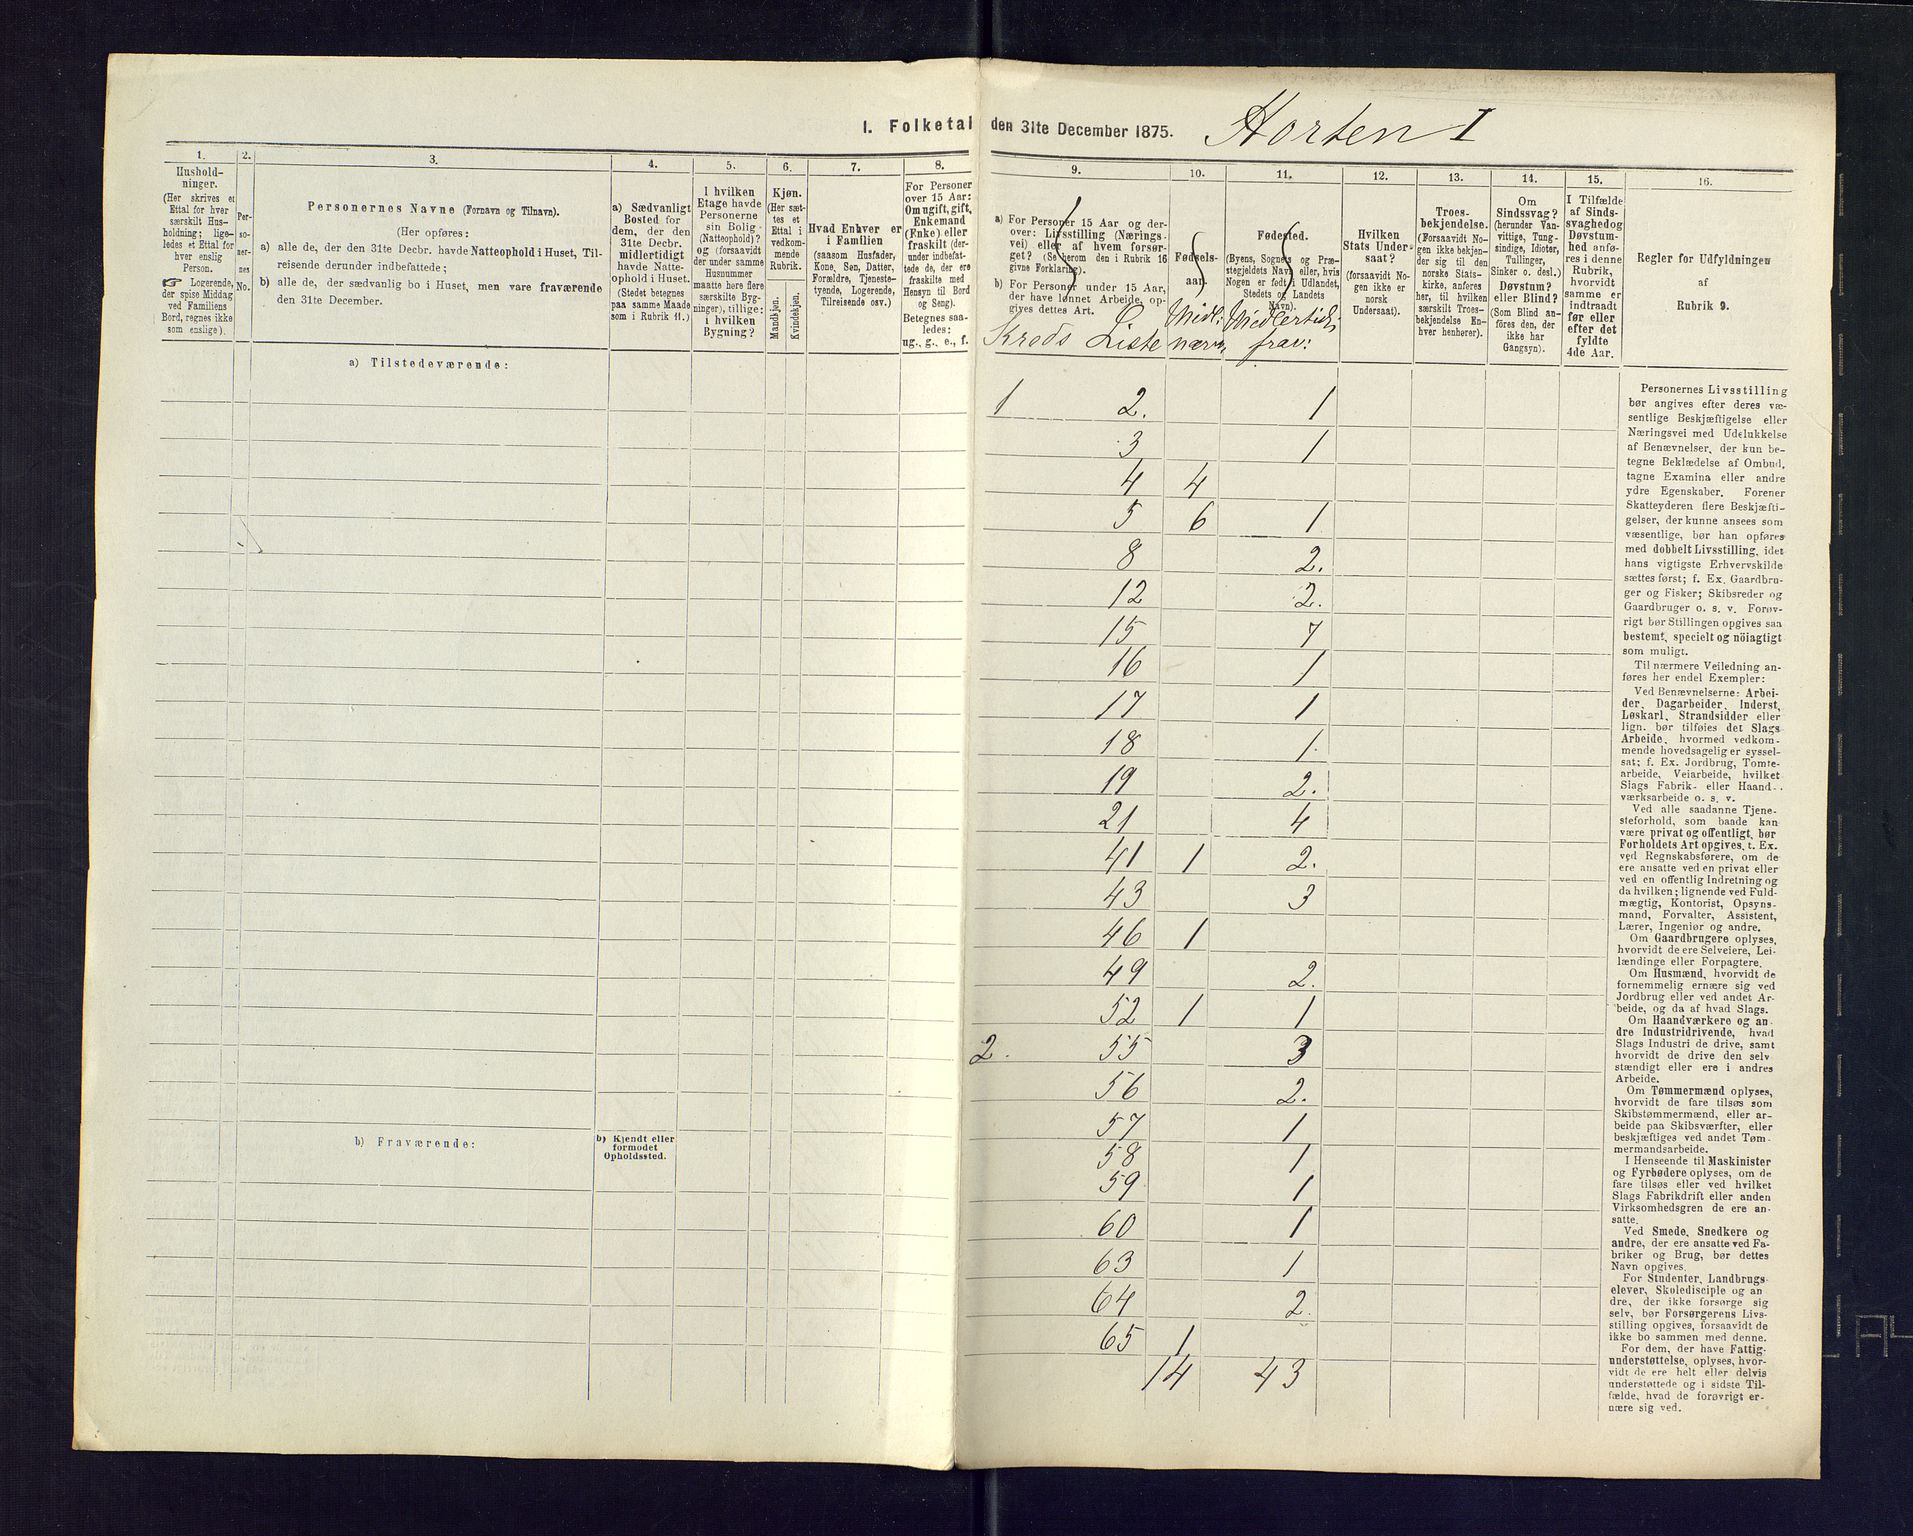 I. Folketal den 31te December 1875. Horten I
1. 2. 3. 4. 5. 6. 7. 8. 9. 10. 11. 12. 13. 14. 15. 16.
Hushold-
ninger.
(Her skrives et
Ettal for hver
særskilt Hus-
holdning; lige-
ledes et Ettal for
hver enslig
Person.
☞ Logerende,
der spise Middag
ved Familiens
Bord, regnes ikke
som enslige).
Per-
so-
ner-
nes
No.
Personernes Navne (Fornavn og Tilnavn).
(Her opføres:
a) alle de, der den 31te Decbr. havde Natteophold i Huset, Til-
reisende derunder indbefattede;
b) alle de, der sædvanlig bo i Huset, men vare fraværende
den 31te December.
a) Sædvanligt
Bosted for
dem, der den
31te Decbr.
midlertidigt
havde Natte-
ophold i Huset.
(Stedet betegnes
paa samme Maade
som i Rubrik 11.)
I hvilken
Etage havde
Personerne
sin Bolig
(Natteophold)?
og (forsaavidt
der under samme
Husnummer
maatte høre flere
særskilte Byg-
ninger), tillige:
i hvilken
Bygning?
Kjøn.
(Her sæt-
tes et
Ettal i
vedkom-
mende
Rubrik.
Mandkjøn.
Kvindekjøn.
Hvad Enhver er
i Familien
(saasom Husfader,
Kone, Søn, Datter,
Forældre, Tjeneste-
tyende, Logerende,
Tilreisende osv.)
For Personer
over 15 Aar:
Om ugift, gift,
Enkemand
(Enke) eller
fraskilt (der-
under indbefat-
tede de, der ere
fraskilte med
Hensyn til Bord
og Seng).
Betegnes saa-
ledes:
ug., g., e., f.
a) For Personer 15 Aar og der-
over: Livsstilling (Nærings-
vei) eller af hvem forsør-
get? (Se herom den i Rubrik 16
givne Forklaring).
b) For Personer under 15 Aar,
der have lønnet Arbeide, op-
gives dettes Art.
Kreds Liste
Fødsels-
aar.
Midl:
nærv.
Fødested.
(Byens, Sognets og Præ-
stegjeldets Navn, eller, hvis
Nogen er født i Udlandet,
Stedets og Landets
Navn).
Midlertid:
frav:
Hvilken
Stats Under-
saat?
(forsaavidt No-
gen ikke er
norsk
Undersaat).
Troes-
bekjendelse.
(Forsaavidt No-
gen ikke bekjen-
der sig til den
norske Stats-
kirke, anføres
her, til hvilken
særskilt Troes-
bekjendelse En-
hver henhører).
Om
Sindssvag?
(herunder Van-
vittige, Tung-
sindige, Idioter,
Tullinger,
Sinker o. desl.)
Døvstum?
eller Blind?
(Som Blind an-
føres den, der
ikke har
Gangsyn).
I Tilfælde
af Sinds-
svaghed og
Døvstum-
hed anfø-
res i denne
Rubrik,
hvorvidt
samme er
indtraadt
før eller
efter det
fyldte
4de Aar.
Regler for Udfyldningen
af
Rubrik 9.
a) Tilstedeværende:
1 2. 1
3 1
4 4
5 6 1
8 2.
12 2.
15 7
16 1
17 1
18 1.
19 2.
21 4
41 1 2.
43 3
46 1
49 2.
52 1 1
2. 55 3
56 2.
57 1
58 1
59 1
60 1
63 1
64 2.
65 1
14 43
b) Fraværende:
b) Kjendt eller
formodet
Opholdssted.
Personernes Livsstilling
bør angives efter deres væ-
sentlige Beskjæftigelse eller
Næringsvei med Udelukkelse
af Benævnelser, der kun be-
tegne Beklædelse af Ombud,
tagne Examina eller andre
ydre Egenskaber. Forener
Skatteyderen flere Beskjæfti-
gelser, der kunne ansees som
væsentlige, bør han opføres
med dobbelt Livsstilling, idet
hans vigtigste Erhvervskilde
sættes først; f. Ex. Gaardbru-
ger og Fisker; Skibsreder og
Gaardbruger o. s. v. Forøv-
rigt bør Stillingen opgives saa
bestemt, specielt og nöiagtigt
som muligt.
Til nærmere Veiledning an-
føres her endel Exempler:
Ved Benævnelserne: Arbei-
der, Dagarbeider, Inderst,
Løskarl, Strandsidder eller
lign. bør tilføies det Slags
Arbeide, hvormed vedkom-
mende hovedsagelig er syssel-
sat; f. Ex. Jordbrug, Tomte-
arbeide, Veiarbeide, hvilket
Slags Fabrik- eller Haand-
værksarbeide o. s. v.
Ved alle saadanne Tjene-
steforhold, som baade kan
være privat og offentligt, bør
Forholdets Art opgives, t. Ex.
ved Regnskabsførere, om de
ere ansatte ved en privat eller
ved en offentlig Indretning og
da hvilken; lignende ved Fuld-
mægtig, Kontorist, Opsyns-
mand, Forvalter, Assistent,
Lærer, Ingeniør og andre.
Om Gaardbrugere oplyses,
hvorvidt de ere Selveiere, Lei-
lændinge eller Forpagtere.
Om Husmænd, hvorvidt de
fornemmelig ernære sig ved
Jordbrug eller ved andet Ar-
beide, og da af hvad Slags.
Om Haandværkere og an-
dre Industridrivende, hvad
Slags Industri de drive, samt
hvorvidt de drive den selv-
stændigt eller ere i andres
Arbeide.
Om Tømmermænd oplyses,
hvorvidt de fare tilsøs som
Skibstømmermænd, eller ar-
beide paa Skibsværfter, eller
beskjæftiges ved andet Tøm-
mermandsarbeide.
I Henseende til Maskinister
og Fyrbødere oplyses, om de
fare tilsøs eller ved hvilket
Slags Fabrikdrift eller anden
Virksomhedsgren de ere an-
satte.
Ved Smede, Snedkere og
andre, der ere ansatte ved Fa-
briker og Brug, bør dettes
Navn opgives.
For Studenter, Landbrugs-
elever, Skoledisciple og an-
dre, der ikke forsørge sig
selv, bør Forsørgerens Livs-
stilling opgives, forsaavidt de
ikke bo sammen med denne.
For dem, der have Fattig-
understøttelse, oplyses, hvor-
vidt de ere helt eller delvis
understøttede og i sidste Til-
fælde, hvad de forøvrigt er-
nære sig ved.